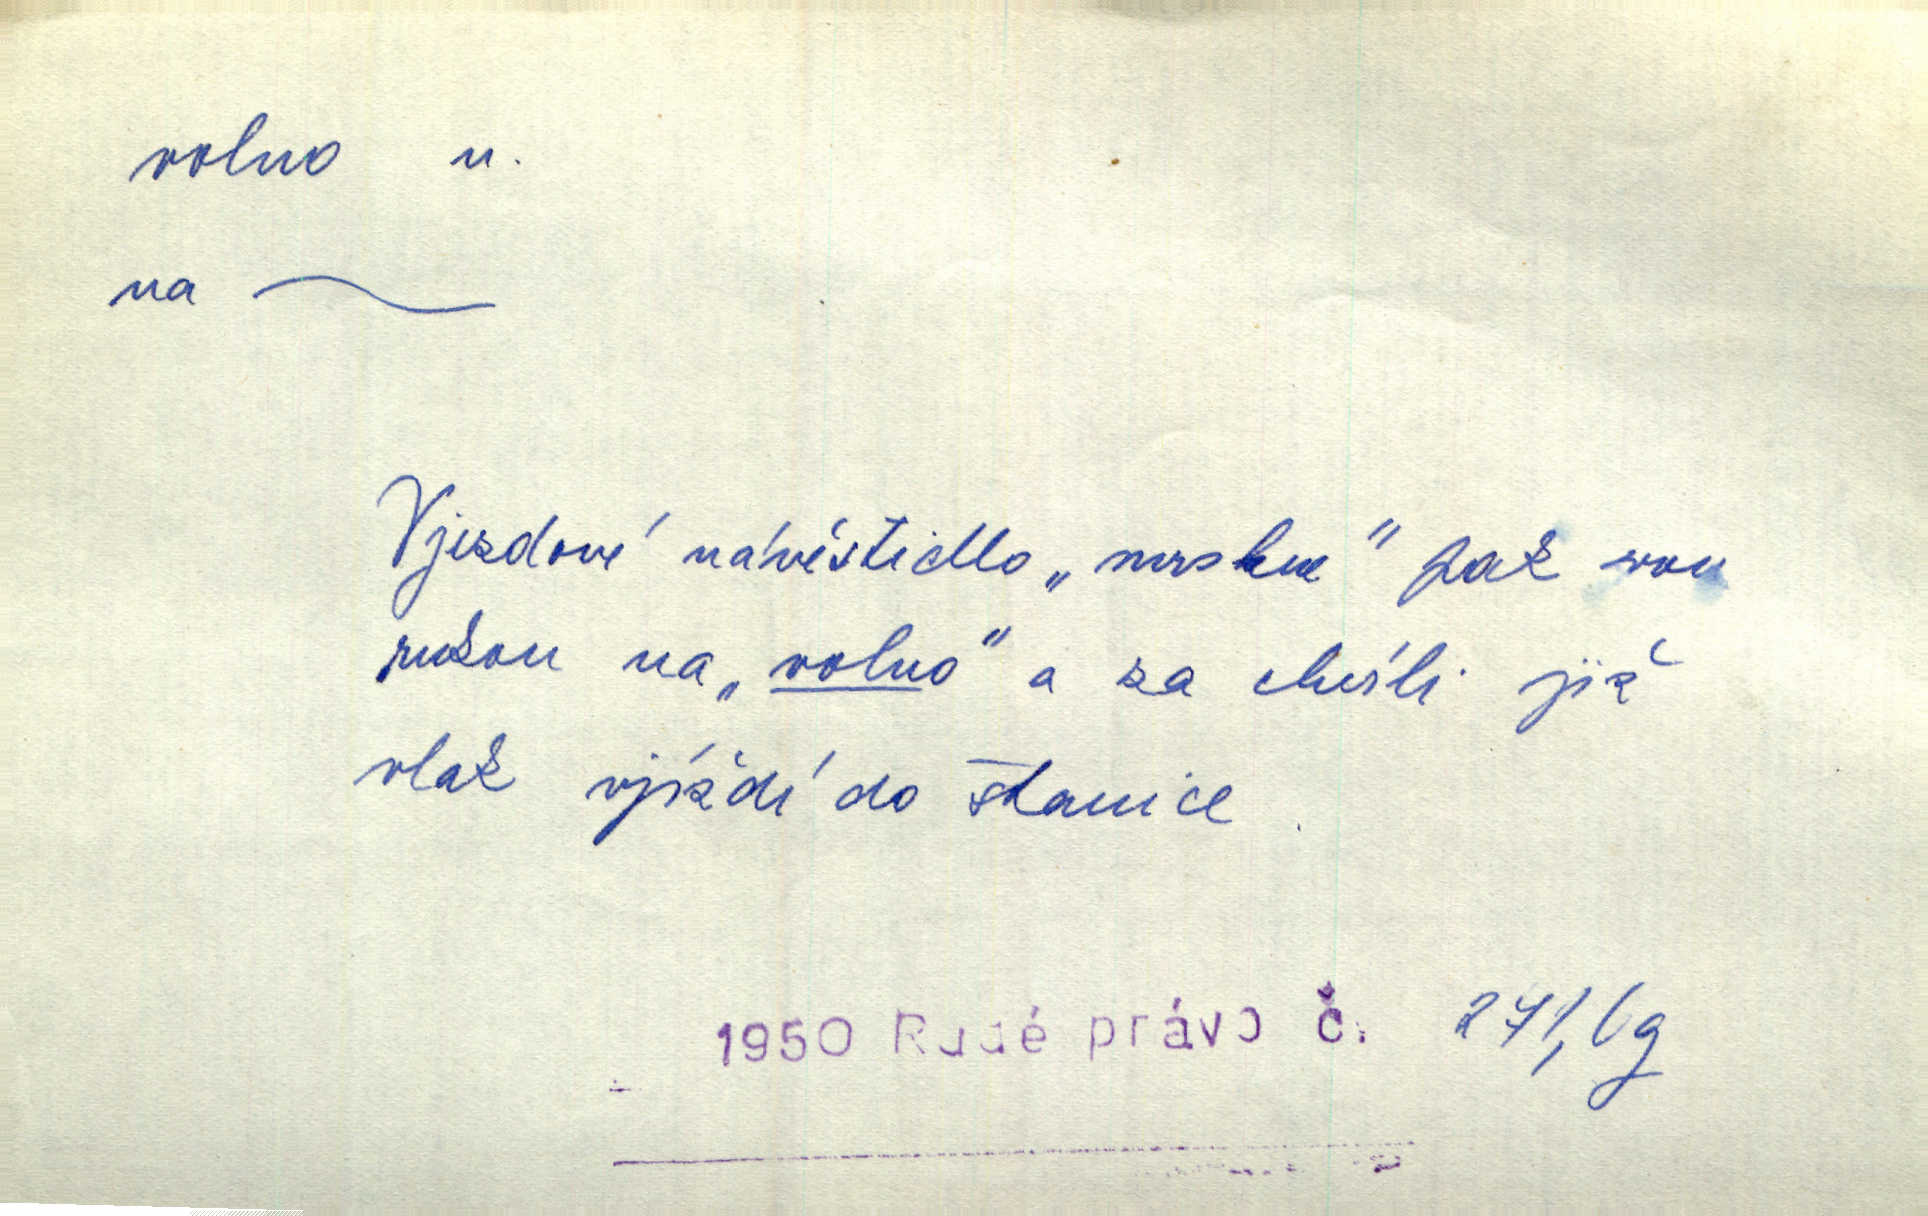 volno n.
na
Vjezdové návěstidlo „mrskne" pak svou
rukou na „volno" a za chvíli již
vlak vjíždí do stanice
1950 Rudé právo č. 271,